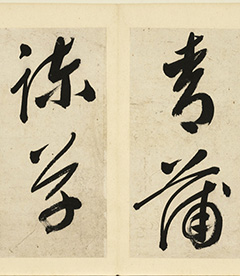 青蒲
諫草